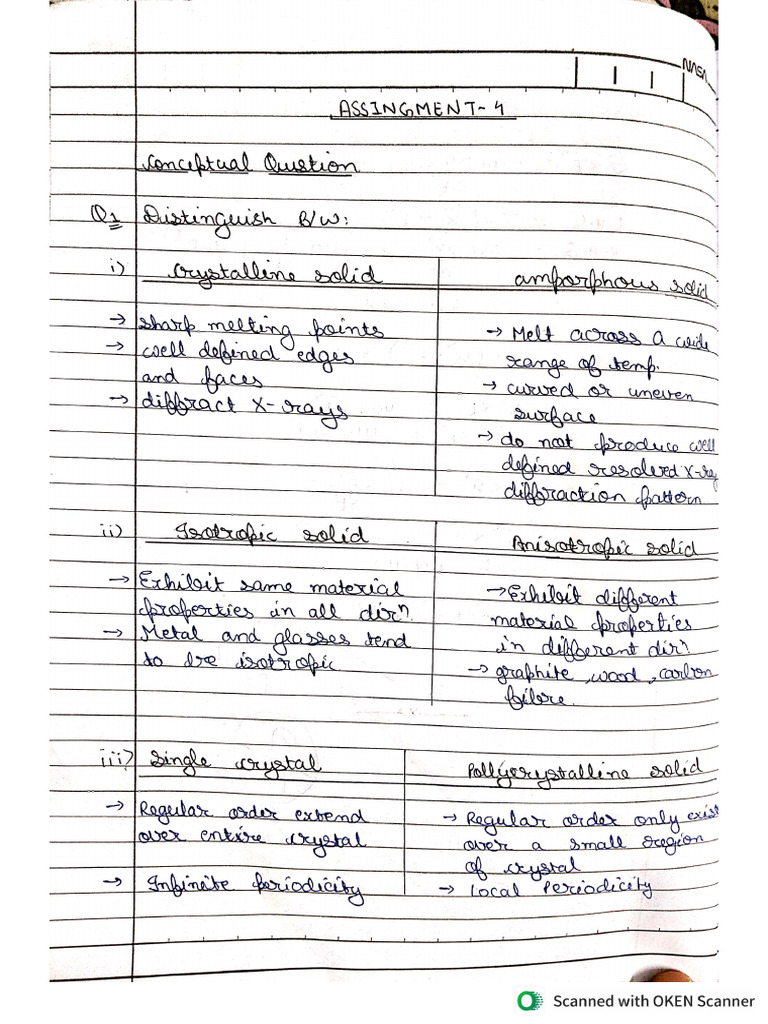 NASA
ASSINGMENT-4
Conceptual Qustion
Q1 Distinguish B/w:
i) Crystalline solid
amporphous solid
→ sharp melting points
→ well defined edges
and faces
→ diffract X-rays
→ Melt across a wide
range of temp.
→ curved or uneven
surface
→ do not produce well
defined resolved X-ray
diffraction pattern
ii) Isotropic solid
Anisotropic solid
→ Exhibit same material
properties in all dirⁿ.
→ Metal and glasses tend
to be isotropic
→ Exhibit different
material properties
in different dirⁿ.
→ graphite, wood, carbon
fibre.
iii) Single crystal
Pollycrystalline solid
→ Regular order extend
over entire crystal
→ Infinite periodicity
→ Regular order only exist
over a small region
of crystal
→ Local Periodicity
Scanned with OKEN Scanner